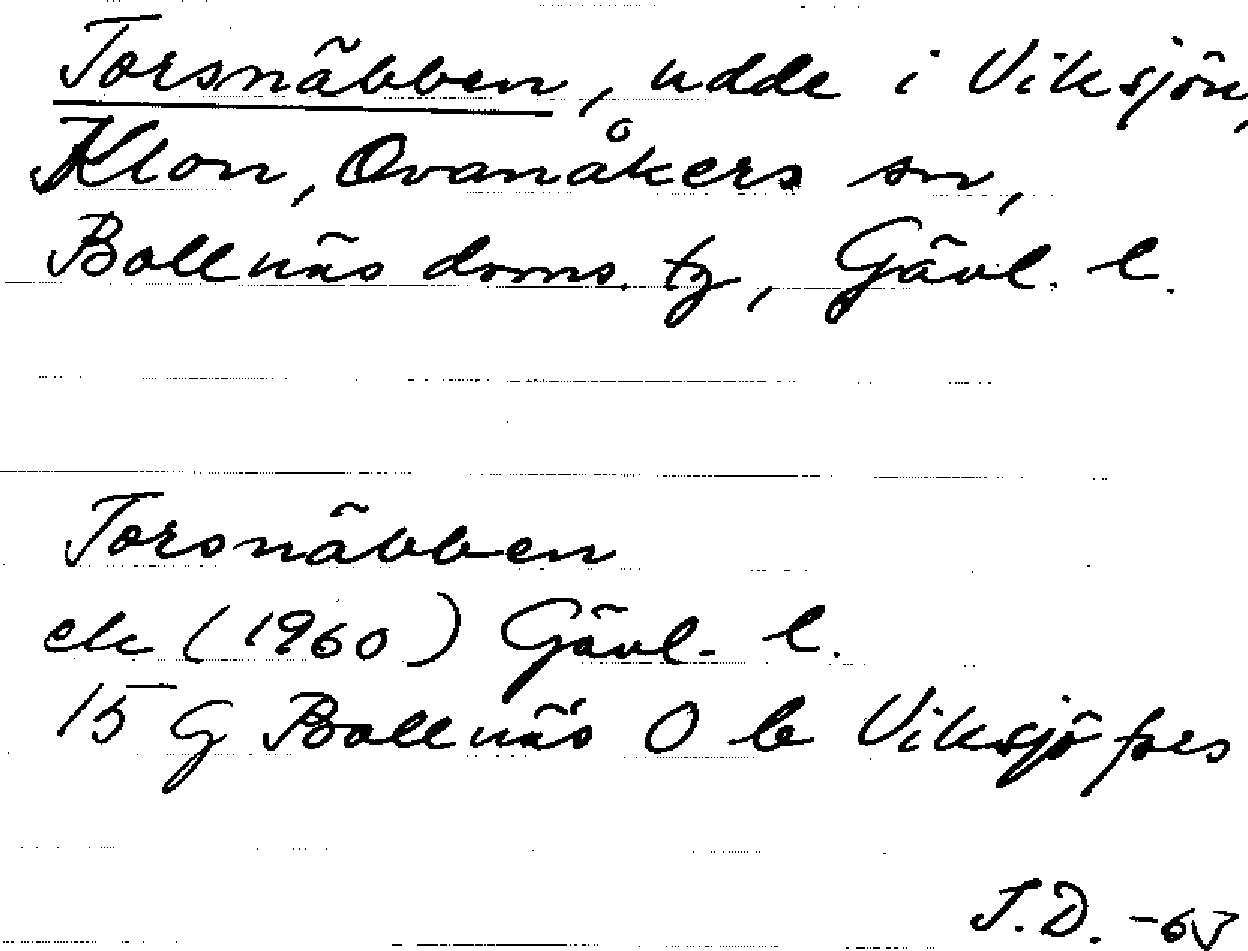 Torsnäbben, udde i Viksjön,
Klon, Ovanåkers sn,
Bollnäs doms. tg, Gävl. l.
Torsnäbben
ek (1960) Gävl. l.
15 G Bollnäs O b Viksjöfors
J.D. -63